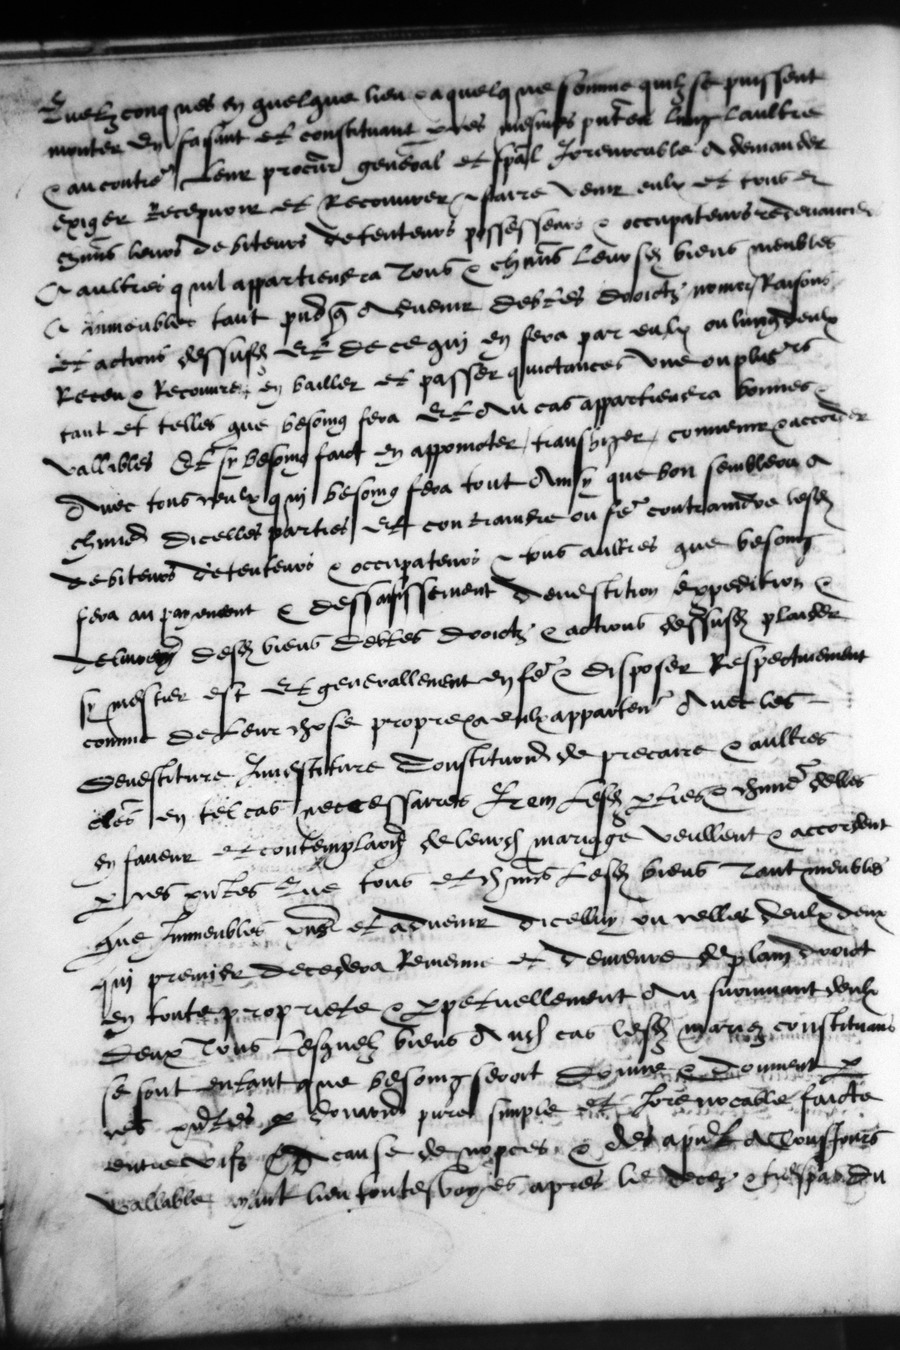 Quelzconques en quelque lieu & a quelque somme quilz se puissent
monter En faisant et constituant par ces mesmes pntes lung laultre
& au contre Leur procur general et spal Irrevocable A demander
exiger Recepvoir et Recouvrer faire venir eulx et tous
chuns leurs debiteurs detenteurs possesseurs & occupateurs redevanciers
& aultres quil appartiendra Tous & chuns leursd biens meubles
& Immeubles tant pns q Advenir debtes droictz noms Raisons
et actions dessusd Et de ce qui en sera par eulx ou lung deulx
Receu & Recouvre en bailler et passer quictances une ou plusrs
tant et telles que besoing sera Et Au cas appartiendra bonnes &
vallibles Et sy besoing faict en appoincter transiger convenir & accorder
Avec tous ceulx qui besoing sera tout Ainsy que bon semblera A
chune dicelles parties Et contraindre ou fe contraindre lesd
debiteurs detenteurs & occupateurs & tous aultres que besoing
sera au payement & dessaisissement devestition expedition &
desd biens debtes droictz & actions dessusd plaider
sy mestier est Et generallement en fe & disposer Respectivement
comme de leur chose propre & a eulx apparten Avec les
devestiture Investiture Constitution de precaire & aultres
cles en tel cas necessaires Item lesd pties & chune delles
en faveur et contemplaon de leurd mariage veullent & accordent
par ces pntes Que tous et chuns lesd biens Tant meubles
que Immeubles pns et advenir dicelluy ou celles deulx deux
qui premier decedera Reviene et demeure de plain droict
en toute propriete & perpetuellement Au survivant deulx
deux Tous lesquelz biens Aud cas lesd mariez constituans
se sont entant que besoing seroit donne & donnent par
ces pntes par donaon pure simple et Irrevocable faicte
entre vifs A cause de nopces & des apnt A Tousjours
vallable ayant lieu toutesvoyes apres le decez & trespas du